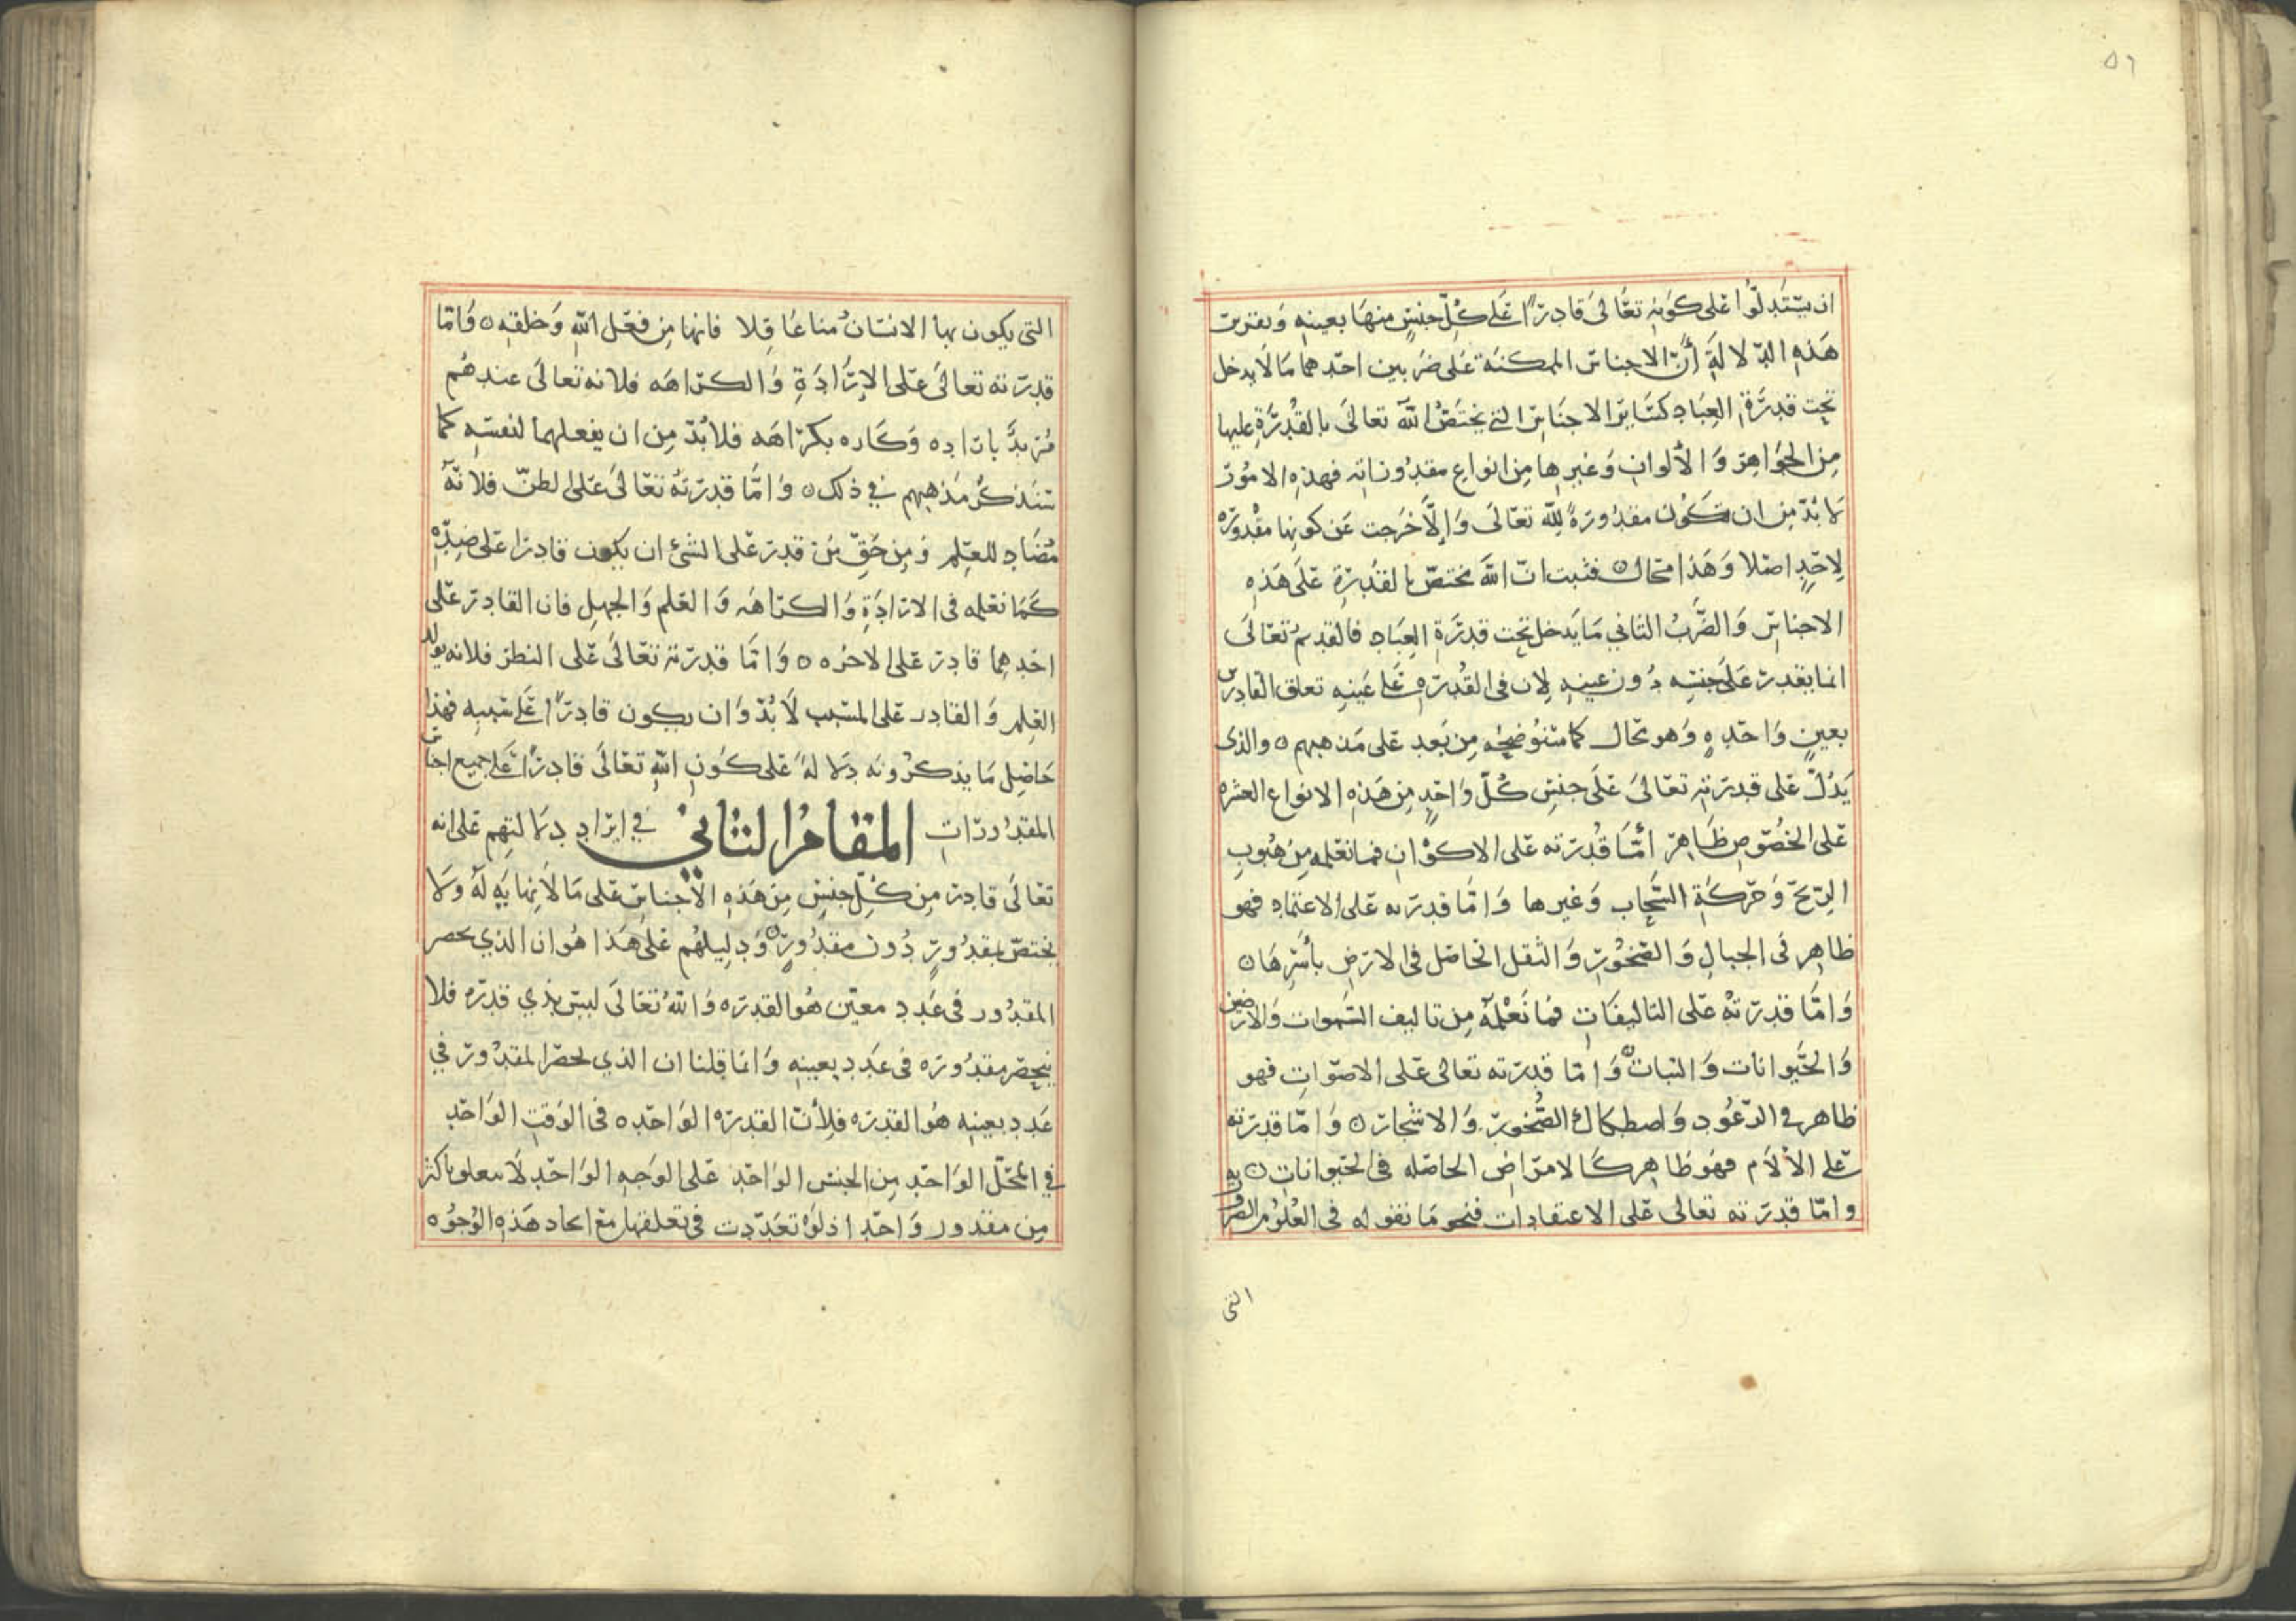 ٥٦
ان يستدلوا على كونه تعالى قادرا على كل جنس منها بعينه وتقرير
هذه الدلالة أن الاجناس الممكنة على ضربين احدهما مالا يدخل
تحت قدرة العباد كسائر الاجناس التي يختص الله تعالى بالقدرة عليها
من الجواهر والألوان وغيرها من انواع مقدوراته فهذه الامور
لا بد من ان تكون مقدورة لله تعالى وإلا خرجت عن كونها مقدوره
لاحد اصلا وهذا محال فثبت ان الله مختص بالقدرة على هذه
الاجناس والضرب الثاني ما يدخل تحت قدرة العباد فالقديم تعالى
انما يقدر على جنسه دون عينه لان في القدره على عينه تعلق القادرين
بعين واحده وهو محال كما سنوضحه من بعد على مذهبهم والذى
يدل على قدرته تعالى على جنس كل واحد من هذه الانواع العشره
على الخصوص ظاهر أما قدرته على الاكوان فما نعلمه من هبوب
الريح وحركة السحاب وغيرها واما قدرته على الاعتماد فهو
ظاهر فى الجبال والصخور والثقل الحاصل فى الارض بأسرها
واما قدرته على التاليفات فما نعلمه من تاليف السموات والارضين
والحيوانات والنبات واما قدرته تعالى على الاصوات فهو
ظاهر في الرعود واصطكاك الصخور والاشجار واما قدرته
على الألام فهو ظاهر كالامراض الحاصله في الحيوانات
واما قدرته تعالى على الاعتقادات فنحو ما نقوله فى العلوم الضروريه
التى
التى يكون بها الانسان منا عاقلا فانها من فعل الله وخلقه واما
قدرته تعالى على الإرادة والكراهه فلانه تعالى عندهم
مريد باراده وكاره بكراهه فلا بد من ان يفعلهما لنفسه كما
سنذكر مذهبهم في ذلك واما قدرته تعالى على الظن فلانه
مضاد للعلم ومن حق من قدر على الشئ ان يكون قادرا على ضده
كما نعلمه فى الارادة والكراهه والعلم والجهل فان القادر على
احدهما قادر على الاخره واما قدرته تعالى على النظر فلانه يولد
العلم والقادر على المسبب لا بد وان يكون قادرا على سببه فهذا
حاصل ما يذكرونه دلالة على كون الله تعالى قادرا على جميع اجناس
المقدورات المقام الثاني في ايراد دلالتهم على انه
تعالى قادر من كل جنس من هذه الأجناس على مالا نهايه له ولا
يختص بمقدور دون مقدور ودليلهم على هذا هو ان الذي يحصر
المقدور فى عدد معين هو القدره والله تعالى ليس بذي قدره فلا
ينحصر مقدوره فى عدد بعينه وانما قلنا ان الذي يحصر المقدور في
عدد بعينه هو القدره فلأن القدره الواحده فى الوقت الواحد
في المحل الواحد من الجنس الواحد على الوجه الواحد لا تتعلق باكثر
من مقدور واحد اذ لو تعددت فى تعلقها مع اتحاد هذه الوجوه